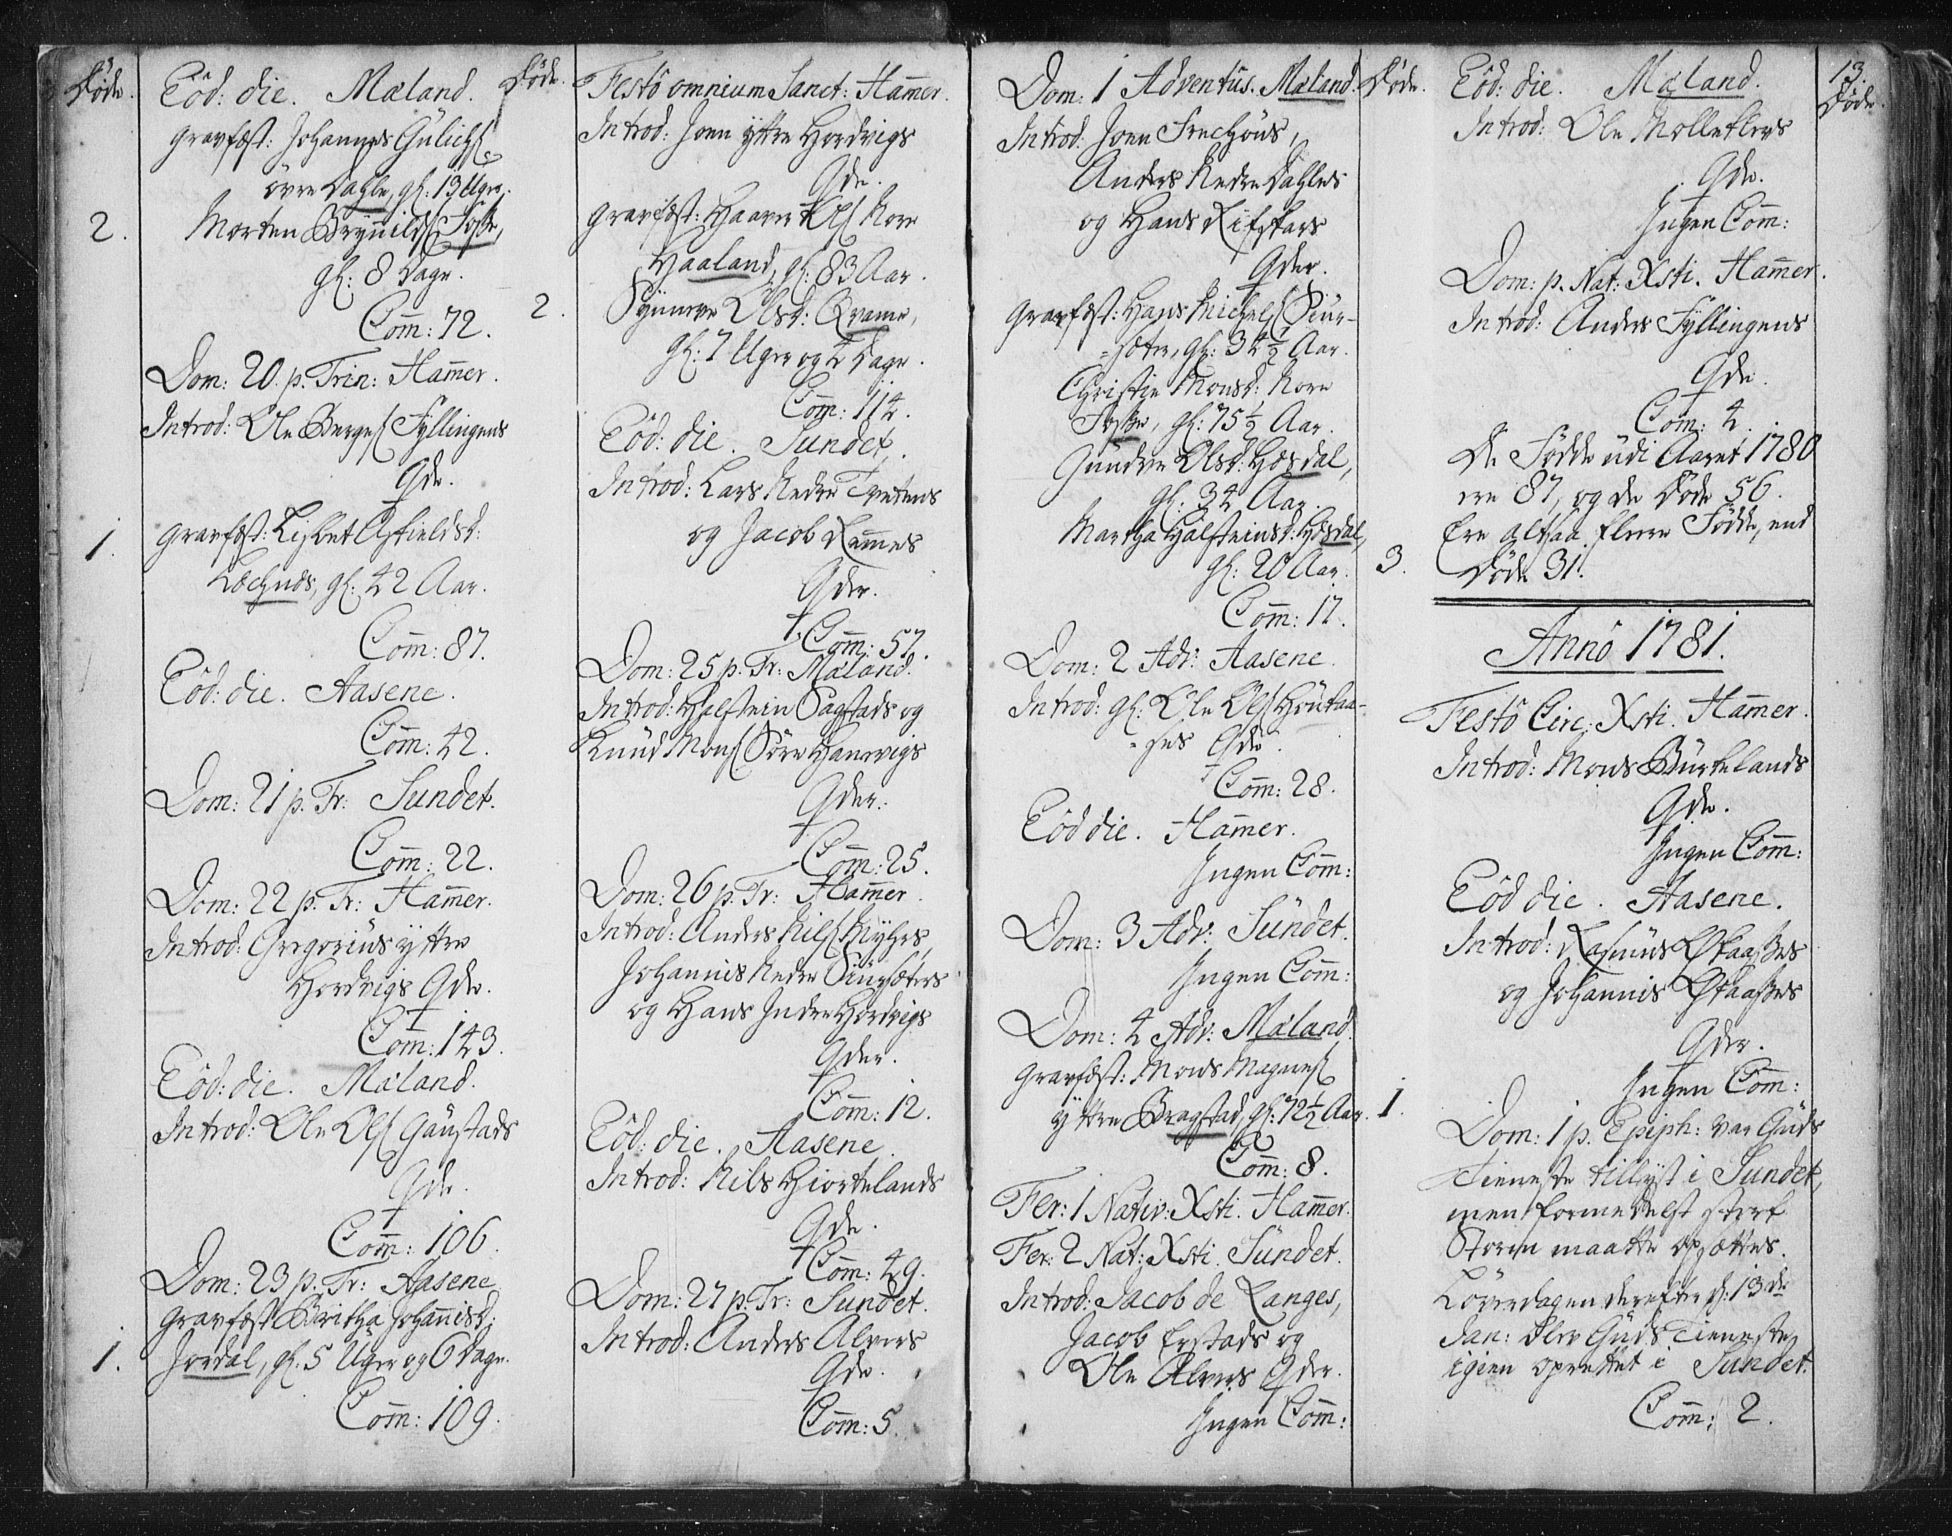 Døde.
Eôd: die. Mæland.
Gravfæst: Johannes Gulichs.
övre Dahle, gl: 13 Uger.
2. Morten Brynilds. Foske,
gl: 8 Dage.
Com̄: 72.
Dom: 20. p. Trin: Ham̄er.
Introd: Ole Berges. Fyllingens
Qde.
1. Gravfæst: Lisbet Asfieldsd:
gl: 42 Aar.
Com̄: 87.
Eôd: die. Aasene.
Com̄: 42.
Dom: 21 p. Tr: Sundet.
Com̄: 22.
Dom: 22 p. Tr: Ham̄er.
Introd: Gregorius yttre
Hordvigs Qde.
Com̄: 143.
Eôd: die. Mæland.
Introd: Ole Ols. Gaustads
Qde.
Com̄: 106.
Dom: 23 p. Tr: Aasene
Gravfæst Britha Johan̄isd:
1. Jordal, gl. 5 Uger og 6 Dage.
Com̄: 109.
Døde.
Festô omnium Sanct: Ham̄er.
Introd: Joen yttre Hordvigs
Qde.
Gravfæst: Haaver Ols. Nore
Haaland, gl: 83 Aar.
2. Synneve Olsd: Qvame,
gl: 7 Uger og 4 Dage.
Com̄: 114.
Eôd: die. Sundet.
Introd: Lars Nedre Tvetens
og Jacob Ram̄es
Qder.
Com̄: 57.
Dom: 25 p. Tr: Mæland.
Introd: Halstein Sagstads og
Knud Mons. Söre Hanevigs
Qder.
Com̄: 25.
Dom: 26 p. Tr: Ham̄er.
Introd: Anders Nils. Myhrs,
Johannis Nedre Titursæters
og Hans Indre Hordvigs
Qder.
Com̄: 12.
Eôd: die. Aasene.
Introd: Nils Hiortelands
Qde.
Com̄: 49.
Dom: 27 p. Tr: Sundet.
Introd: Anders Alvers
Qde.
Com̄: 5.
Dom: 1 Adventus. Mæland.
Introd: Joen
Anders Nedre Dahles
og Hans Rifskars
Qder.
Gravfæst: Hans Michels. Tiur-
=sæter, gl: 34½ Aar.
Christie Monsd: Nore
Foske, gl: 75½ Aar.
Gundve Olsd: Hosdal,
gl: 34 Aar.
Martha Halsteinsd: Hosdal,
gl: 20 Aar.
Com̄: 17.
Dom: 2 Adv: Aasene.
Introd: gl: Ole Ols. Houkaa-
=ses Qde.
Com̄: 28.
Eôd die. Ham̄er.
Ingen Com̄:
Dom: 3 Adv: Sundet.
Ingen Com̄:
Dom: 4 Adv: Mæland.
Gravfæst: Mons Magnes.
yttre Bragstad, gl: 72½ Aar.
Com̄: 8.
Fer: 1 Nativ: Xsti. Ham̄er.
Fer: 2 Nat: Xsti. Sundet.
Introd: Jacob de Langes,
Jacob Erstads og
Ole Alvers Qder.
Ingen Com̄:
Døde.
3.
1.
Eôd: die. Mæland.
Introd: Ole Molleklevs
Qde.
Ingen Com̄:
Dom: p. Nat: Xsti. Ham̄er.
Introd: Anders Fyllingens
Qde.
Com: 4.
De Födde udi Aaret 1780
ere 87, og de Døde 56.
Ere altsaa flere Födde, end
Døde 31.
Annô 1781.
Festô Circ: Xsti. Ham̄er.
Introd: Mons Burkelands
Qde.
Ingen Com̄:
Eôd die. Aasene.
Introd: Rasmus Øskaasses
og Johannis Øskaasses
Qder.
Ingen Com̄:
Dom: 1 p. Epiph: var Guds
Tieneste tillyst i Sundet,
men formedelst sterk
Storm maatte opsættes.
Löverdagen derefter d: 13de
Jan: blev Guds Tieneste
igien oprettet i Sundet.
Com̄: 2.
13.
Døde.